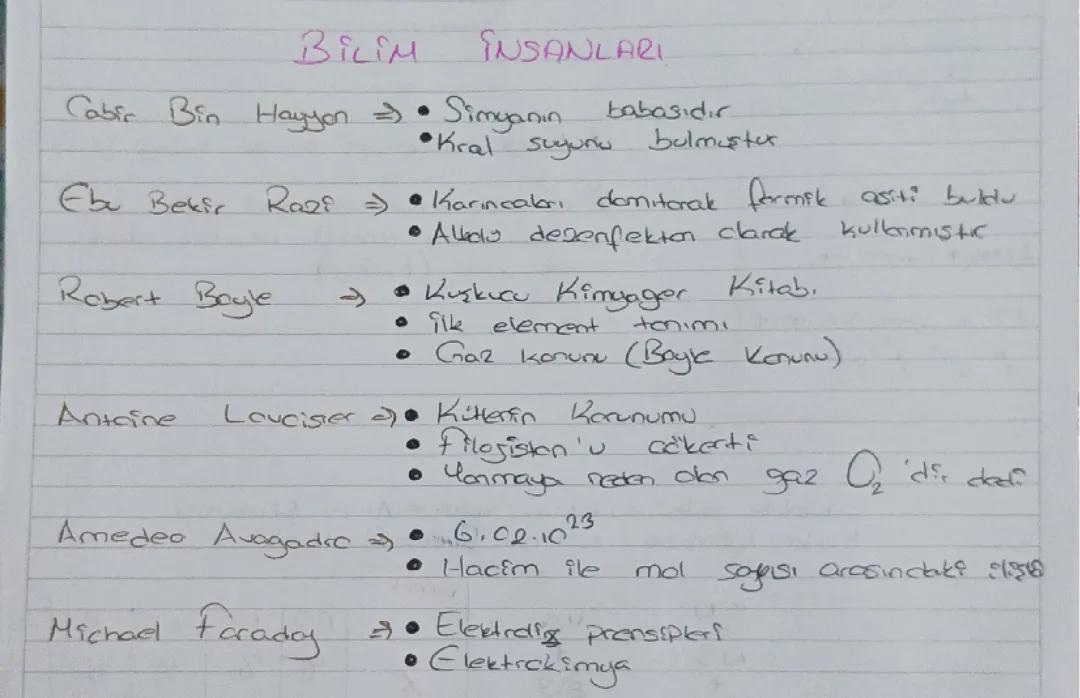 BİLİM İNSANLARI
Cabir Bin Hayyan ⇒ • Simyanın babasıdır
• Kral suyunu bulmuştur
Ebu Bekir Razi ⇒ • Karıncaları damıtarak formik asiti buldu
• Alkolü dezenfektan olarak kullanmıştır
Robert Boyle ⇒ • Kuşkucu Kimyager Kitabı
• ilk element tanımı
• Gaz kanunu (Boyle Kanunu)
Antoine Lavoisier ⇒ • Kütlenin Korunumu
• filojiston'u çökertti
• Yanmaya neden olan gaz O₂'dir dedi
Amedeo Avagadro ⇒ • 6,02.10²³
• Hacim ile mol sayısı arasındaki ilişki
Michael faraday ⇒ • Elektroliz prensipleri
• Elektrokimya